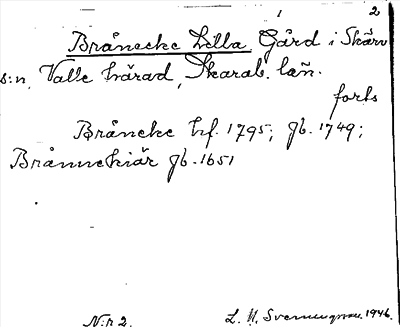 1 2
Brånecke Lilla, Gård i Skärv
s:n, Valle härad, Skarab. län.
forts
Bråncke hf. 1795; gb. 1749;
Brånnekiär gb. 1651
N:r 2. L. M. Svenungsson. 1946.